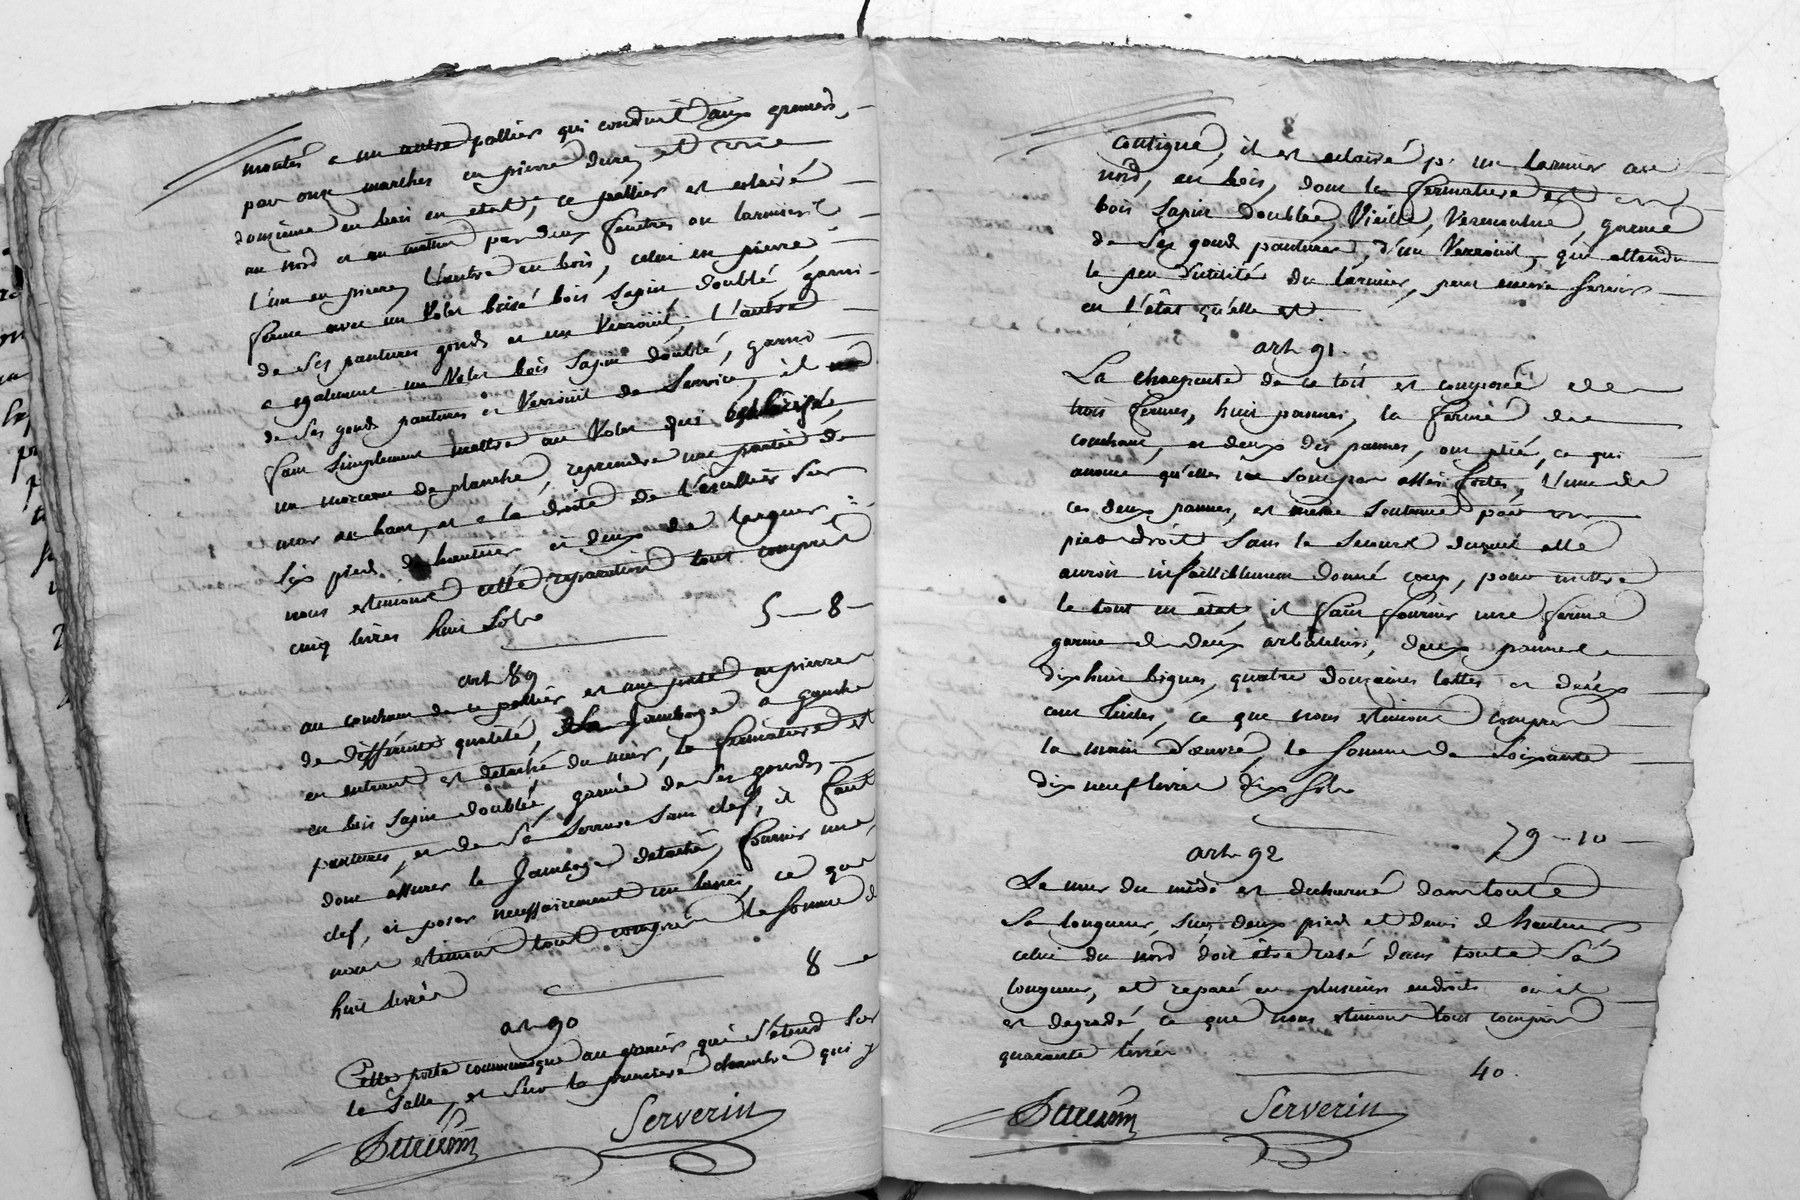 montés a un autre pallier qui conduit aux greniers,
par onze marches en pierre dure, et une
douzieme en bois en etat, ce pallier est eclairé
au nord et au par deux fenêtres ou larmiers
l'un en pierre, l'autre en bois, celui en pierre,
ferme avec un volet brisé bois sapin doublé, garni
de ses pantures gonds et un verrouil, l'autre
a egalement un volet bois sapin doublé, garni
de ses gonds pantures et verrouil de service, il
faut simplement mettre au volet qui
un morceau de planche, reprendre une partie de
mur en haut, et a la droite de l'escallier sur
six pied de hauteur et deux de largeur
nous estimons cette reparation tout compris
cinq livres huit sols
5 - 8 -
art. 89
au couchant de ce pallier est une porte en pierre
de differente qualité, le jambage a gauche
en entrant est detaché du mur, la fermature est
en bois sapin doublé, garnie de ses gonds
pantures, et de sa serrure sans clef, il faut
donc assurer le jambage detaché, fournir une
clef, et poser necessairement un lanci, ce que
nous estimons tout compris la somme de
huit livres
8 -
art. 90
Cette porte communique au grenier qui s'etend sur
la salle, et sur la premiere chambre qui y
Serverin
8
contigue, il est eclairé pr un larmier au
nord, en bois, dont la fermature est en
bois sapin doublée, vieille, vermoulue, garnie
de ses gonds pantures, d'un verrouil, qui attendu
le peu d'utilité du larmier, peut encore servir
en l'état qu'elle est.
art. 91
La charpente de ce toit est composée de
trois fermes, huit pannes, la ferme de
couchant, et deux des pannes, ont plié, ce qui
anonce qu'elles ne sont pas assés fortes, l'une de
ces deux pannes, est même soutenue par un
pied droit sans le secours duquel elle
auroit infailliblement donné coup, pour mettre
le tout en état, il faut fournir une ferme
garnie de deux arbaletiers, deux pannes
dix huit bigues, quatre douzaines lattes et deux
cent tuiles, ce que nous estimons compris
la main d'œuvre, la somme de soixante
dix neuf livres dix sols
79 - 10 -
art. 92
Le mur du midi est decharné dans toute
sa longueur, sur deux pied et demi de hauteur
celui du nord doit être rasé dans toute sa
longueur, et reparé en plusieurs endroits ou il
est degradé, ce que nous estimons tout compris
quarante livres
40.
Serverin